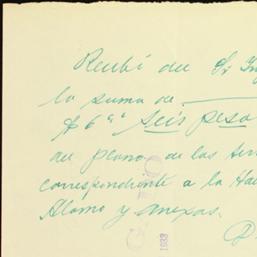 Recibí del Sr. Ing
la suma de
$6.00 Seis pesos
del plano de las
correspondiente a la Hac
Alamo y anexas.
1933